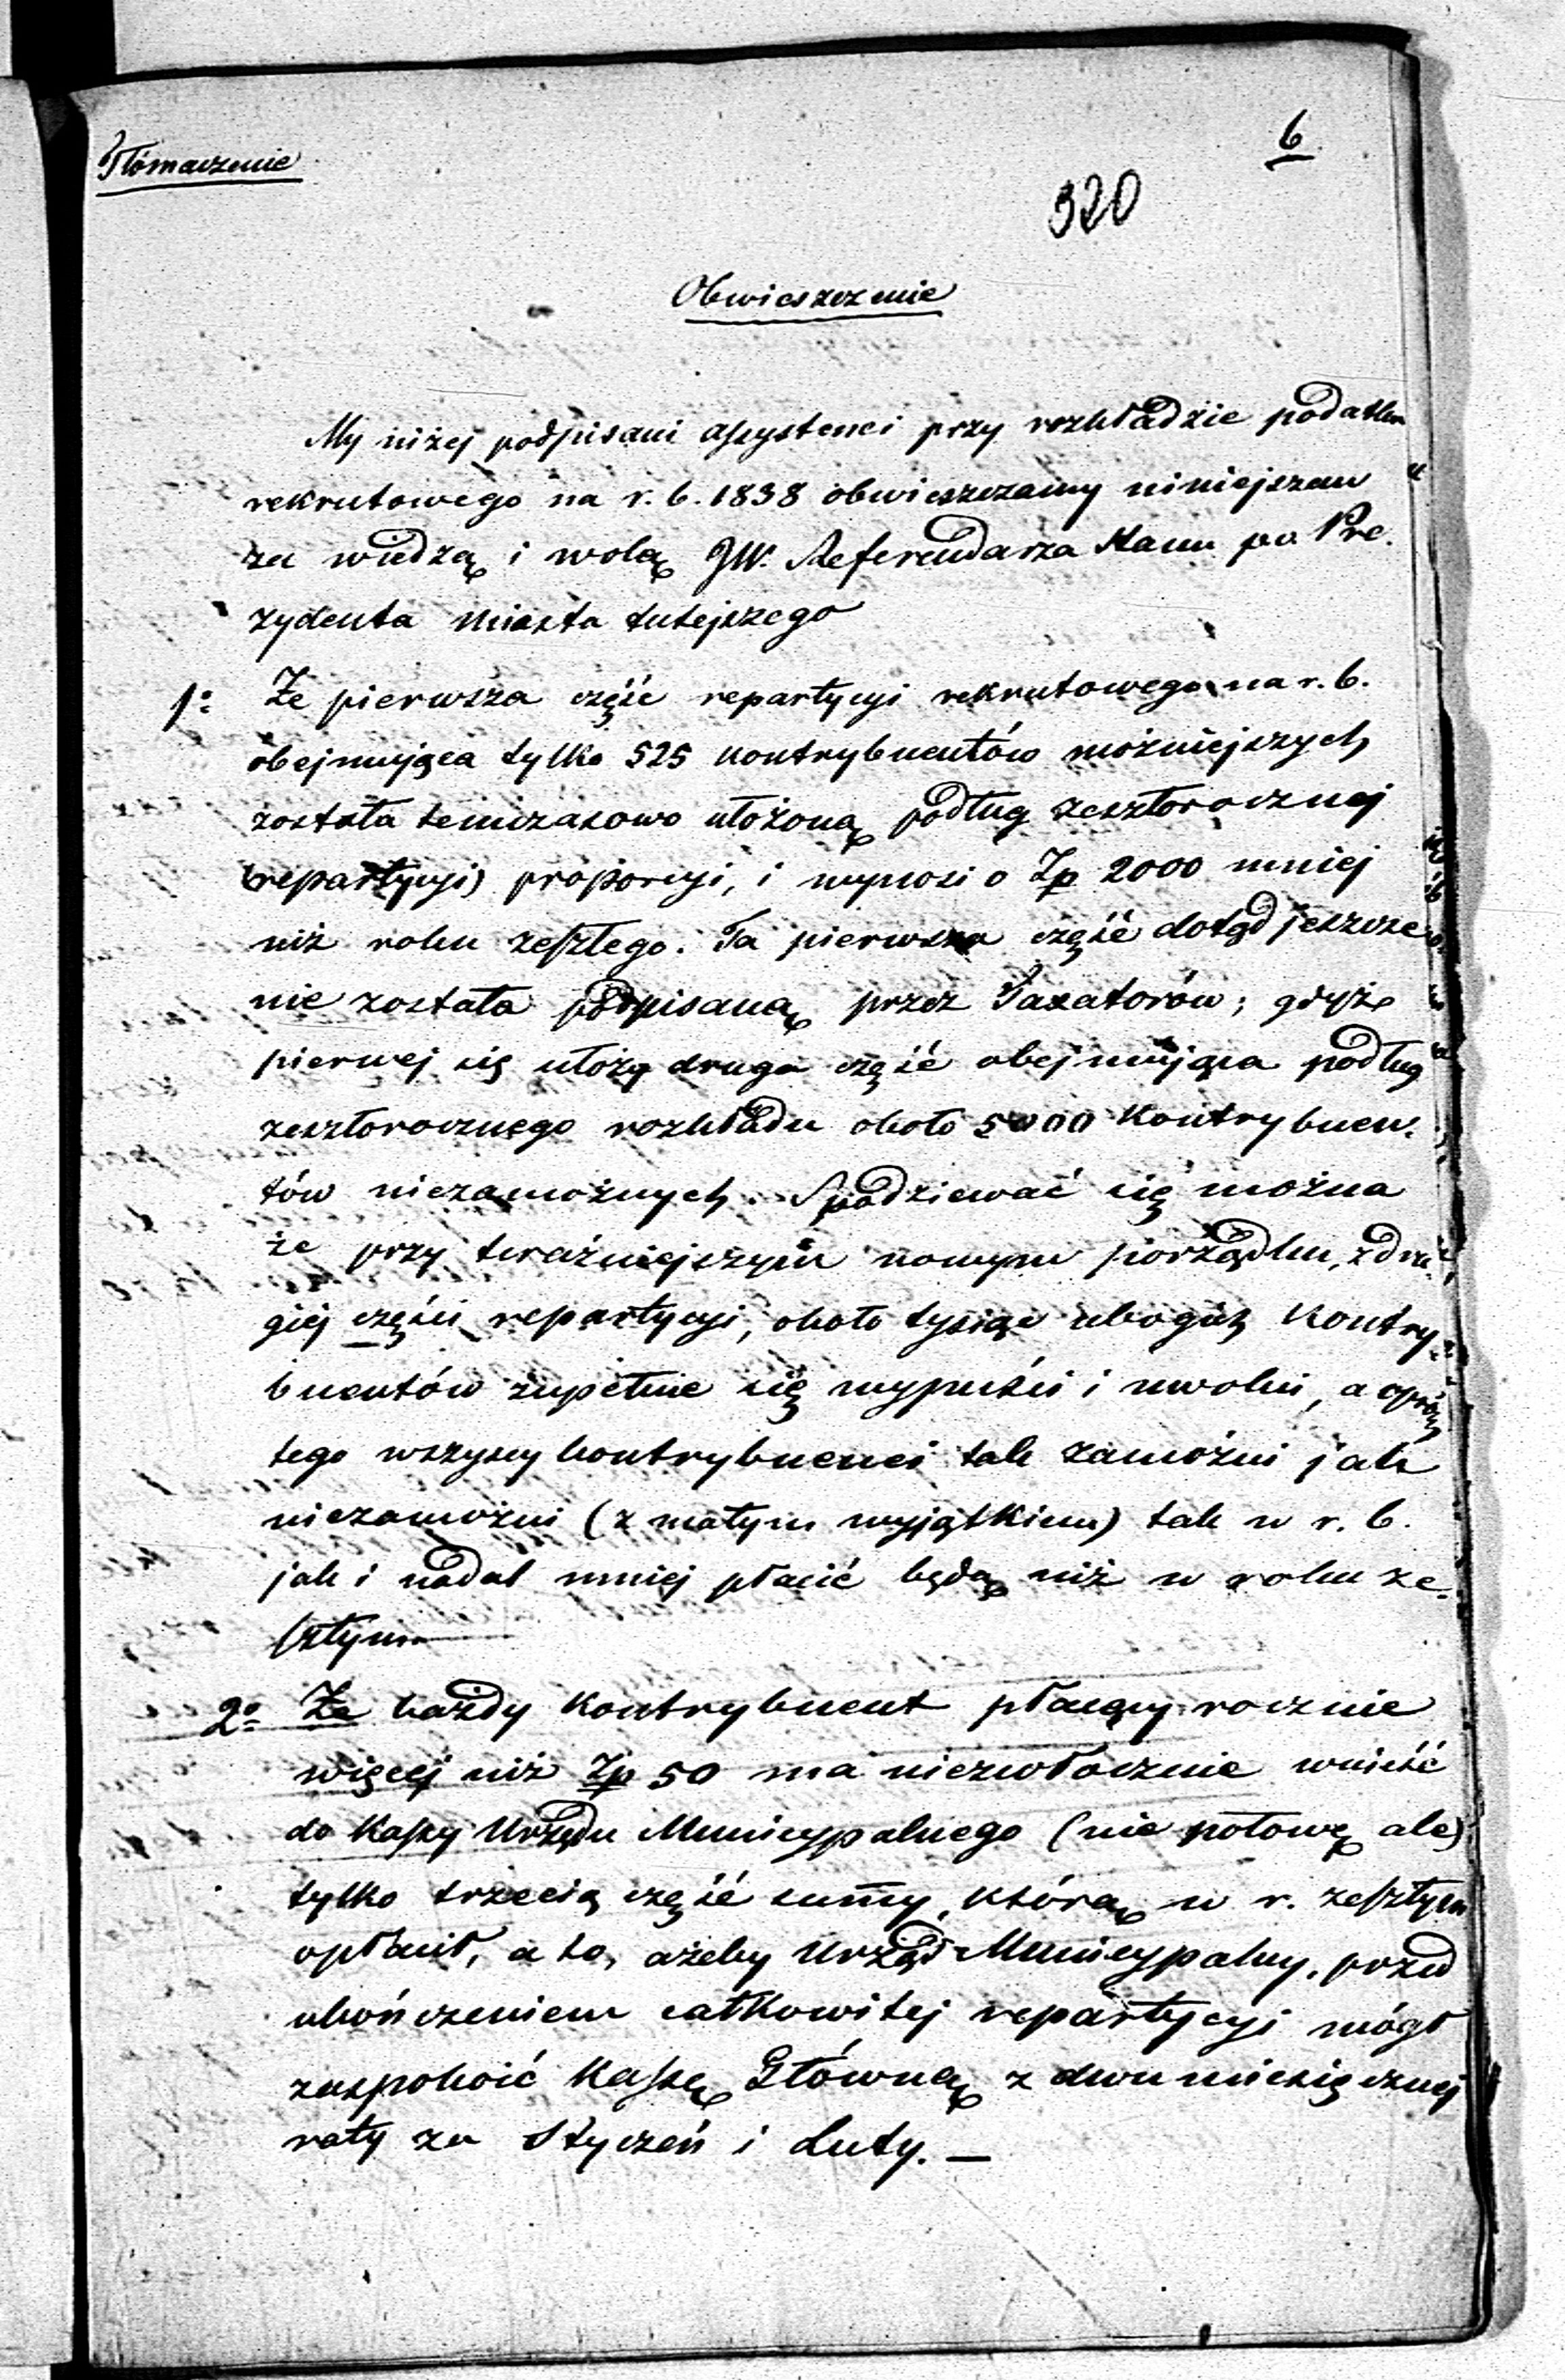 Tłómaczenie
6
320
Obwieszczenie
My niżej podpisani assystenci przy rozkładzie podatku
rekrutowego na r. b. 1838 obwieszczamy niniejszem
za wiedzą i wolą JW. Referendarza Stanu po Pre-
zydenta miasta tutejszego
1o Że pierwsza część repartycyi rekrutowego na r. b.
obejmująca tylko 525 kontrybuentów możniejszych
została temczasowo ułożoną podług zesztorocznej
(repartycyi) proporcyi, i wynosi o Zp 2000 mniej
niż roku zeszłego. Ta pierwsza część dotąd jeszcze
nie została podpisaną przez Taxatorów; gdyż
pierwej się ułoży druga część obejmująca podług
zesztorocznego rozkładu około 5000 Kontrybuen-
tów niezamożnych. Spodziewać się można
że przy teraźniejszym nowym porządku, z dru-
giej części repartycyi, około tysiąc ubogich Kontry-
buentów zupełnie się wypuści i uwolni, a oprócz
tego wszyscy kontrybuenci tak zamożni jak
niezamożni (z małym wyjątkiem) tak w r. b.
jak i nadal mniej płacić będą niż w roku ze-
szłym
2o Że każdy Kontrybuent płacący rocznie
więcej niż Zp 50 ma niezwłocznie wnieść
do Kassy Urzędu Municypalnego (nie połowę ale)
tylko trzecią część summy, którą w r. zeszłym
opłacił, a to, ażeby Urząd Municypalny, przed
ukończeniem całkowitej repartycyi mógł
zaspokoić Kassę Główną z dwumiesięcznej
raty za Styczeń i Luty. —